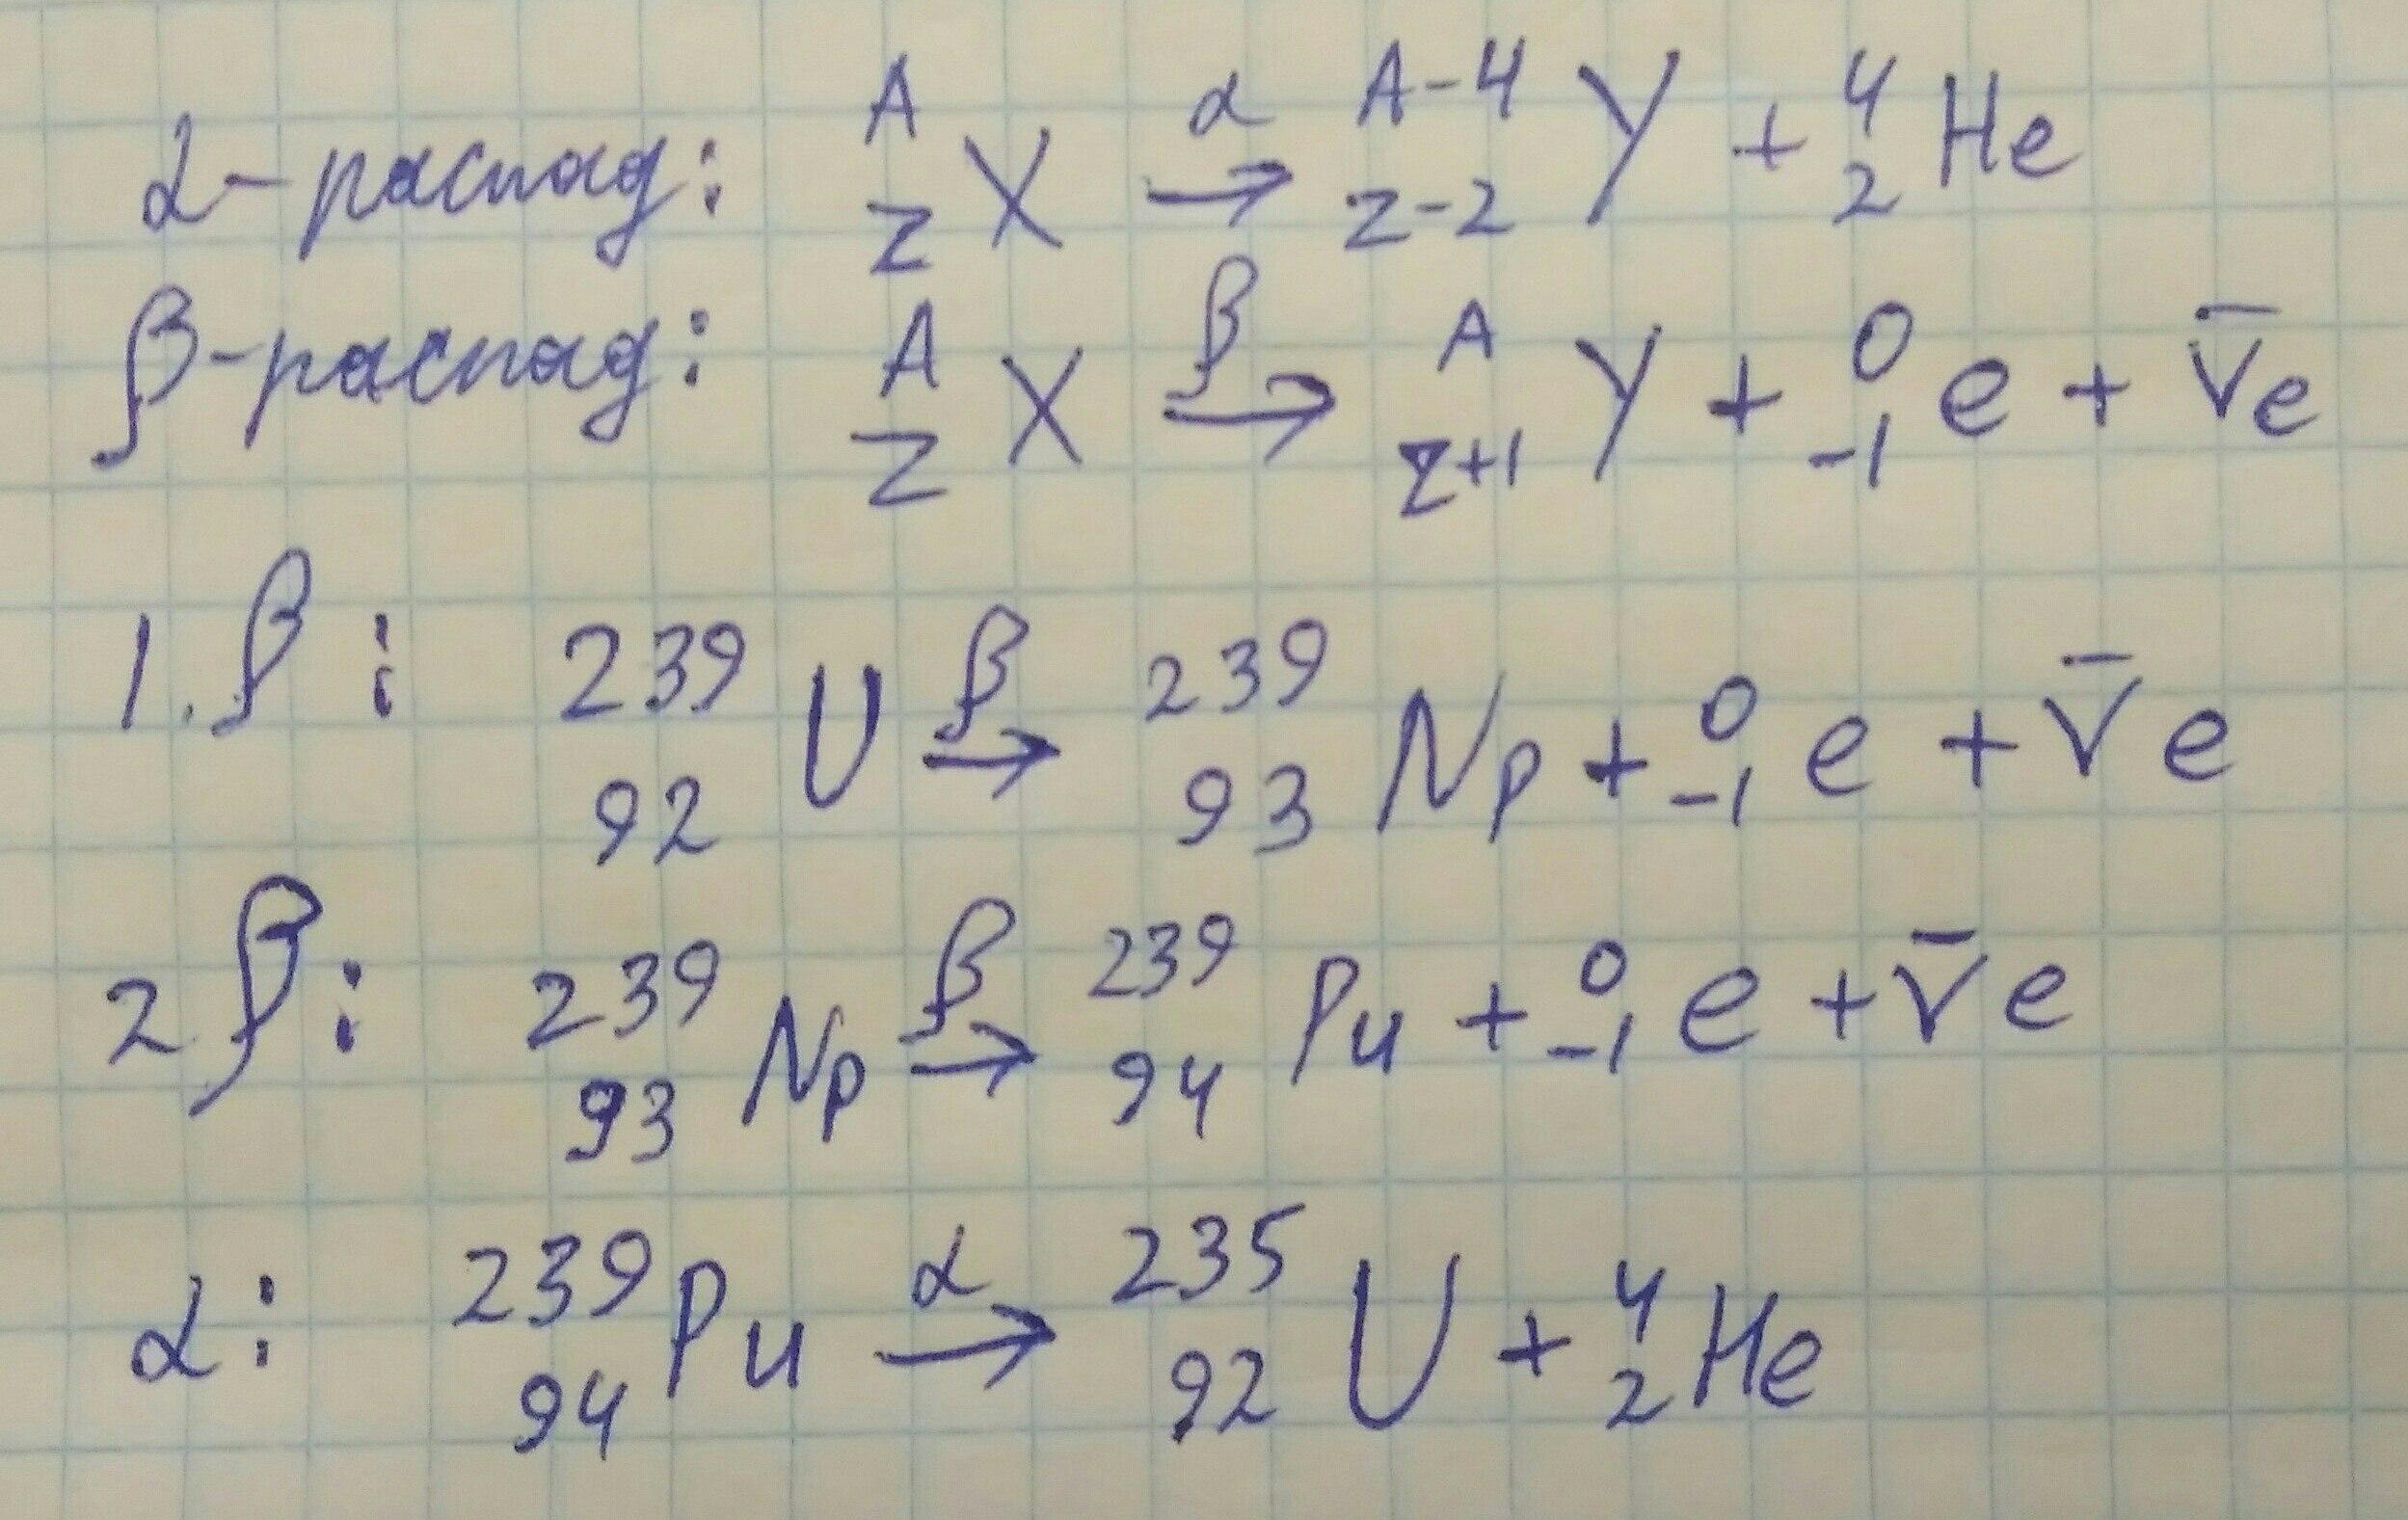 α-распад: ᴬ_Z X →^α ^{A-4}_{Z-2} Y + ^4_2 He
β-распад: ^A_Z X →^β ^A_{Z+1} Y + ^0_{-1} e + ν̄e
1. β: ^{239}_{92} U →^β ^{239}_{93} Np + ^0_{-1} e + ν̄e
2 β: ^{239}_{93} Np →^β ^{239}_{94} Pu + ^0_{-1} e + ν̄e
α: ^{239}_{94} Pu →^α ^{235}_{92} U + ^4_2 He